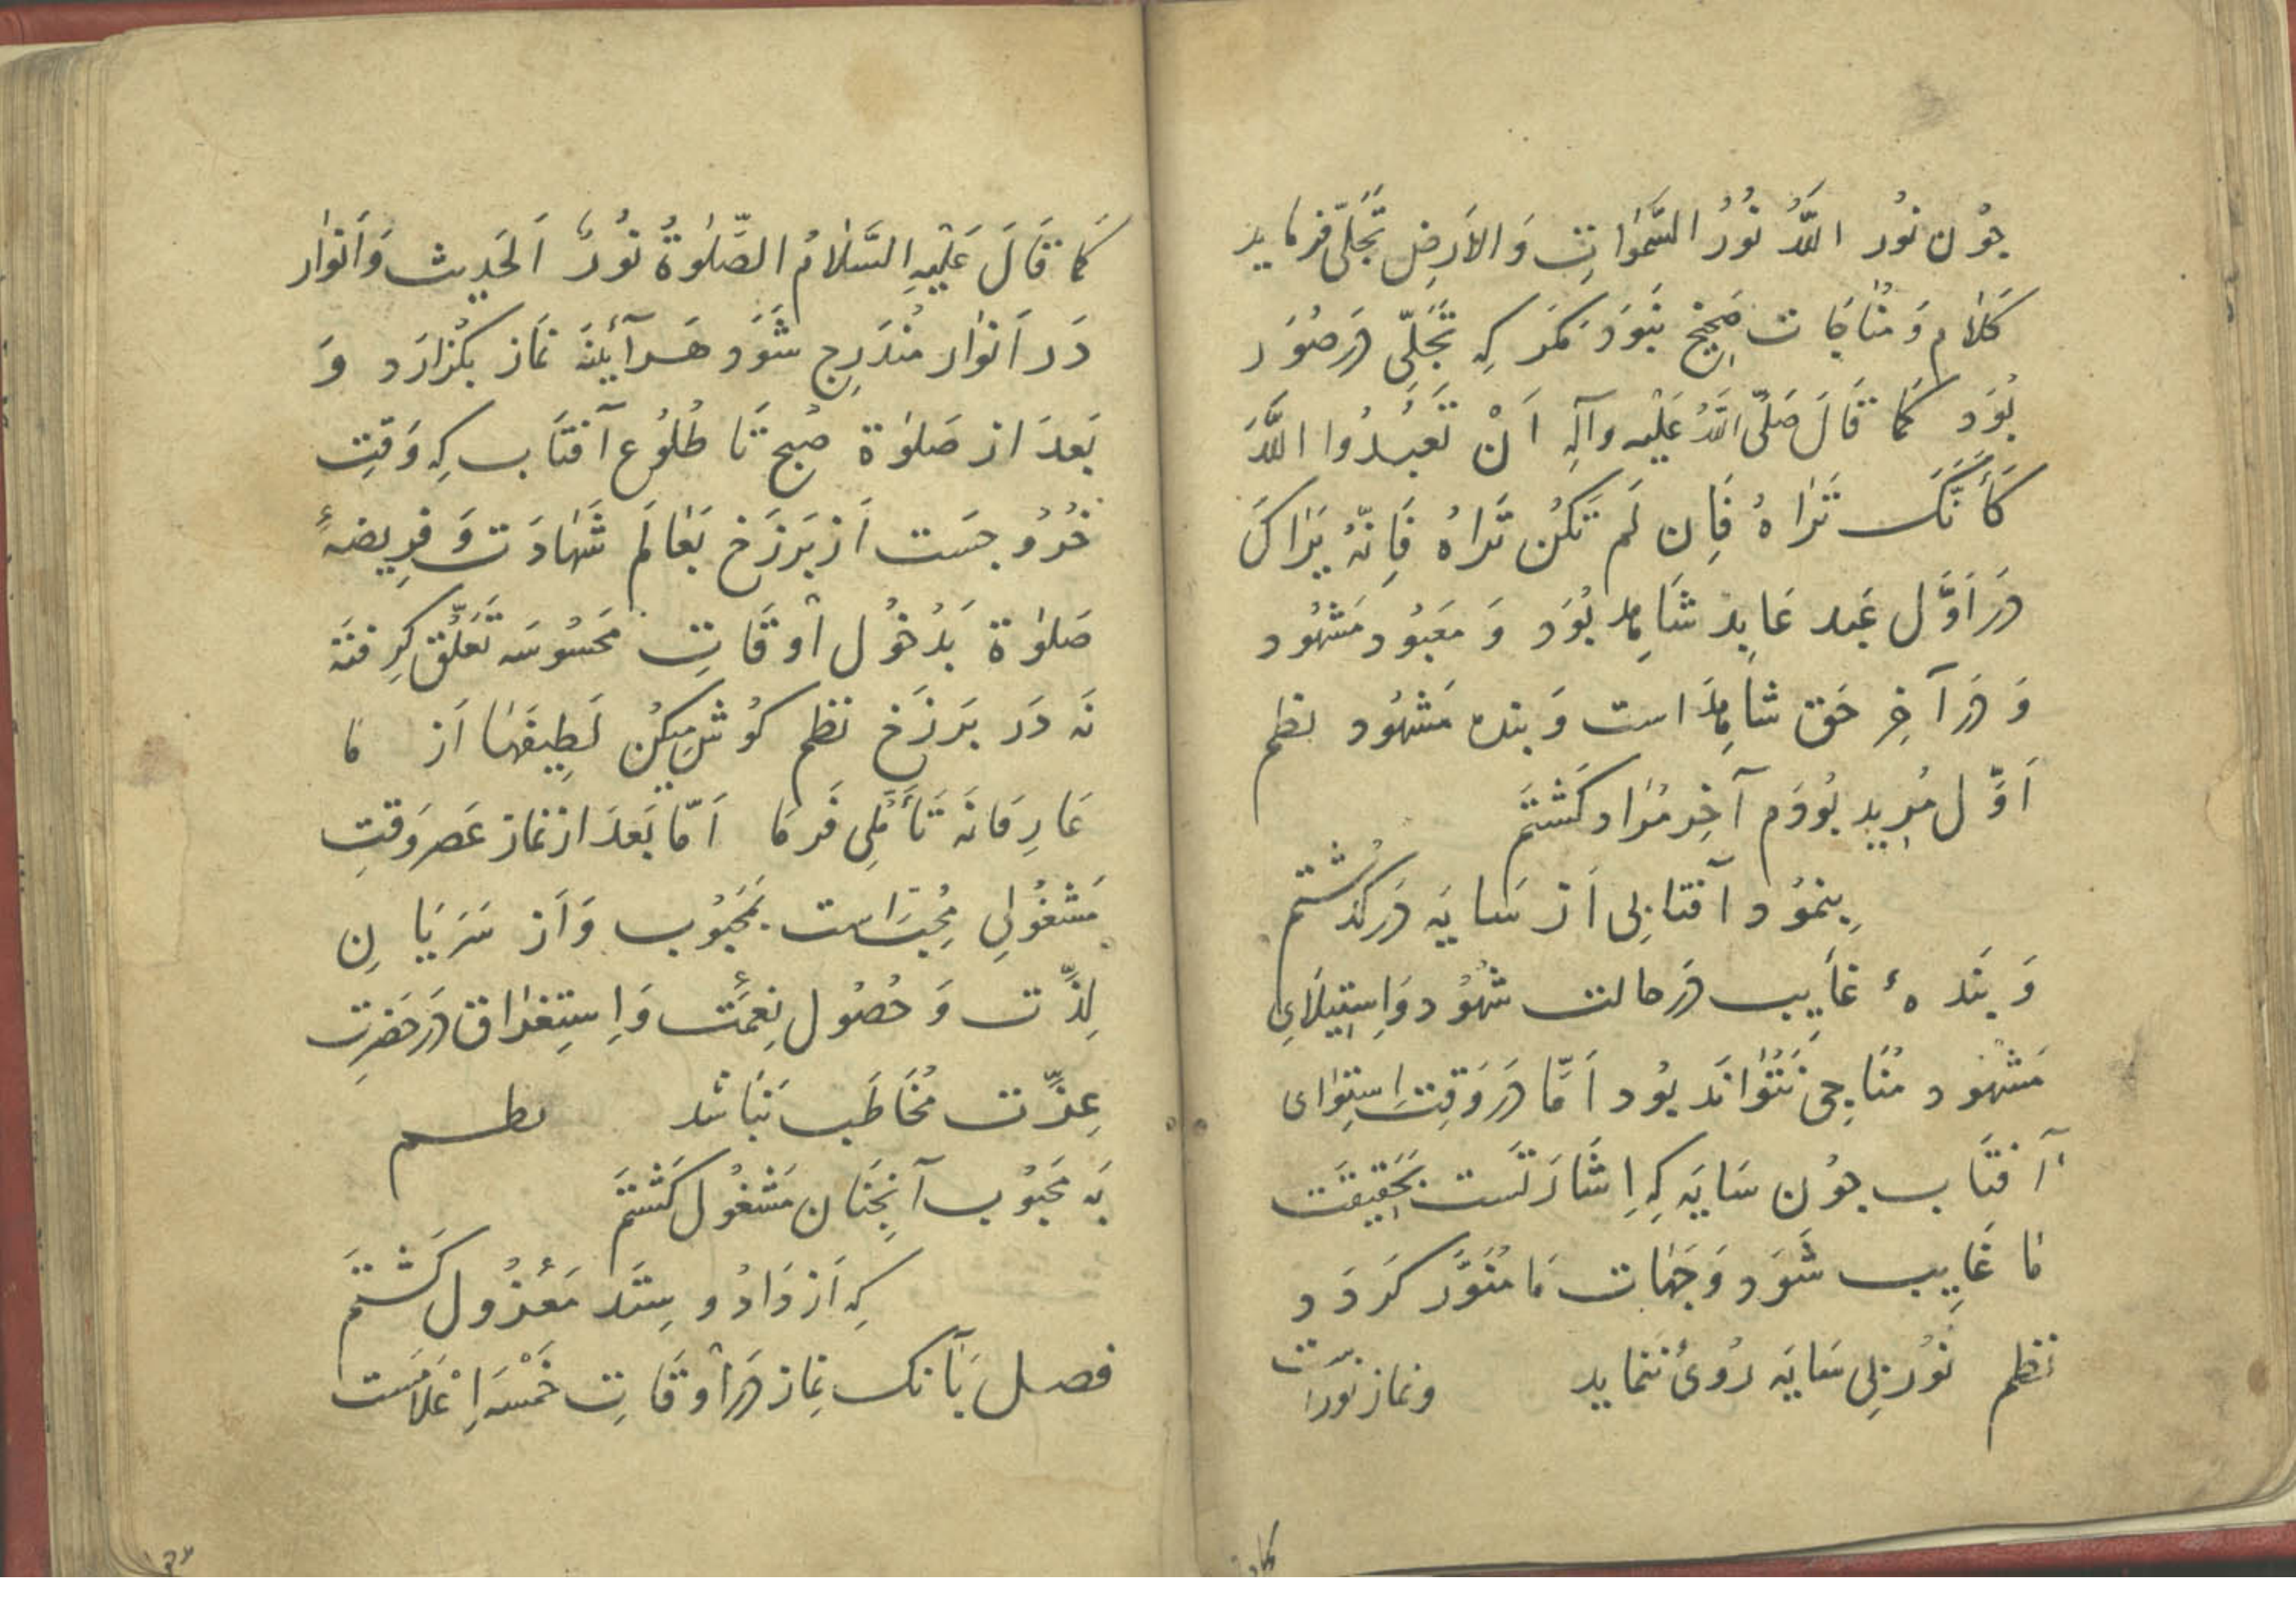 چُون نُور اللَّهُ نُورُ السَّمٰوَاتِ وَالاَرضِ تَجَلّی فرماید
کَلَام وَ مُنَاجَات صَحِیح نَبوَد مَگَر کِه تَجَلِّی دَر صُوَر
بُوَد کَمَا قَالَ صَلّی اللّهُ عَلَیْهِ وَآلِهِ اَنْ تَعبُدُوا اللَّهَ
کَأَنَّکَ تَرَاهُ فَاِن لَم تَکُن تَرَاهُ فَاِنّهُ یَرَاکَ
دَر اَوَّل عَبد عَابِد شَاهِد بُوَد وَ مَعبُود مَشهُود
وَ دَر آخِر حَق شَاهِد است وَ بنده مَشهُود نظم
اَوَّل مُرِید بُودَم آخِر مُرَاد گَشتَم
بِنمُود آفتابی اَز سَایَه دَر گذشتم
وَ بَندهٔ غَایِب دَر حالت شُهُود وَ اِستِیلَایِ
مَشهُود مُنَاجِی نَتُوَانَد بُود اَمَّا دَر وَقتِ اِستِوَای
آفتَاب چُون سَایَه کِه اِشَارَتَست بَحَقِیقَت
مَا غَایِب شَوَد وَ جَهَات مَا مُنَوَّر گَردَد
نظم نُور بِی سَایَه رُوی نَنماید ونماز نوراست
کَمَا قَالَ عَلَیْهِ السَّلَامُ الصَّلٰوةُ نُورٌ اَلحَدِیث وَ اَنوَار
دَر اَنوَار مُندَرِج شَوَد هَر آیٔنَه نَمَاز بگُذارَد وَ
بَعدَ از صَلٰوة صُبح تَا طُلُوع آفتَاب کِه وَقتِ
خُرُوجَست اَز بَرزَخ بَعَالَم شَهَادَت وَ فَرِیضَهٔ
صَلٰوة بَدُخُول اَوقَاتِ مَحسُوسَه تَعَلُّق گِرِفتَه
نَه دَر بَرزَخ نظم گُوش میکُن لَطِیفَهَا اَز ما
عَارِفَانَه تَأَمُّلِی فَرمَا اَمّا بَعدَ از نماز عَصر وَقتِ
مَشغُولِی مُحِبّانست بَمَحبُوب وَ اَز سَرَیَانِ
لذَّت وَ حُصُول نِعمَت وَ اِستِغرَاق دَر حَضرتِ
عِزَّت مُخَاطَب نَبَاشد نظم
بَه مَحبُوب آنچَنَان مَشغُول گَشتَم
کِه اَز دَاد و سِتَد مَعزُول گَشتَم
فصل بَآنک نِماز دَر اَوقَاتِ خَمسَه اِعلامَست
کما قا